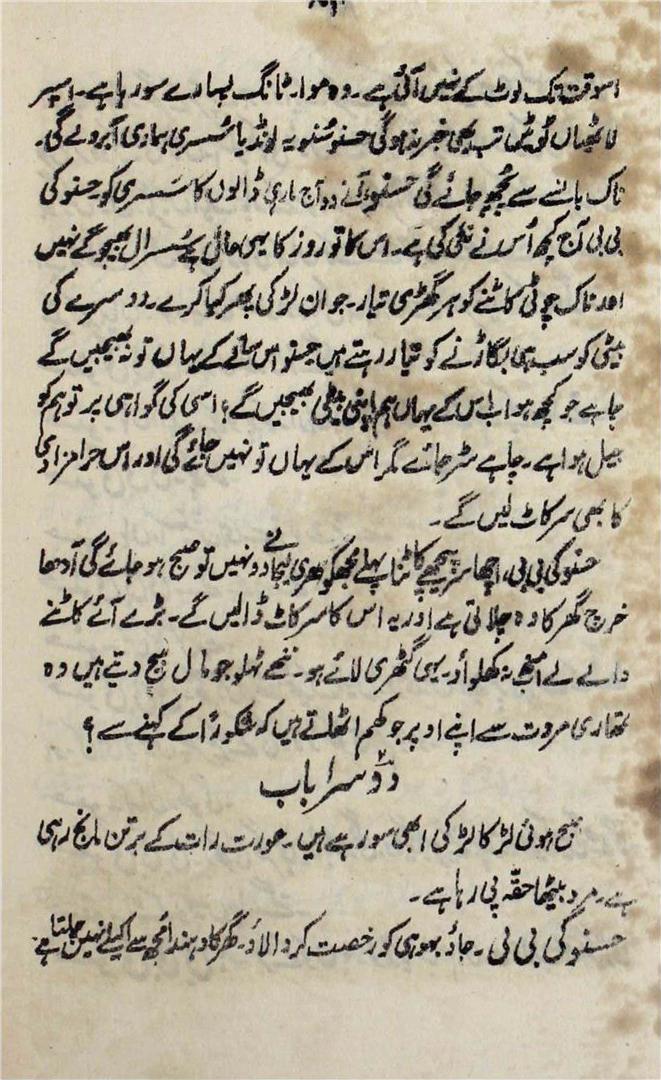 اسوقت تک لوٹ کے نہیں آتی ہے۔ وہ موا۔ ٹانگ پسارے سو رہا ہے۔ اسپر
لاٹھیاں ٹوٹیں تب بھی خبر نہ ہو گی حسنو سُنو یہ لونڈیا سُسری ہماری آبرو لے گی۔
ناک ہالنسے سے جائے گی حسنو آنے دو آج مار ہی ڈالوں گا سَسری کو۔ حسنو کی
بی بی آج کچھ اُس نے نئی کی ہے۔ اس کا تو روز کا یہی حال ہے سُسرال بھیجو گے نہیں
اور ناک چوٹی کاٹنے کو ہر گھڑی تیار۔ جوان لڑکی پھر کیا کرے۔ دوسرے کی
بیٹی کو سب ہی بگاڑنے کو تیار رہتے ہیں حسنو اس سالے کے یہاں تو نہ بھیجیں گے
چاہے جو کچھ ہو اب اس کے یہاں ہم اپنی بیٹی بھیجیں گے؟ اسی کی گواہی پر تو ہم کو
جیل ہوا ہے۔ چاہے سٹر جائے مگر اس کے یہاں تو نہیں جائے گی اور اس حرامزادی
کا بھی سر کاٹ لیں گے۔
حسنو کی بی بی، اچھا سر پیچھے کاٹنا پہلے مجھکو گھری لیجانے دو نہیں تو صبح ہو جائے گی آدھا
خرچ گھر کا وہ چلاتی ہے اور یہ اس کا سر کاٹ ڈالیں گے۔ بڑے آئے کاٹنے
والے لے مجھے نہ کھلواؤ۔ یہی گٹھری لائے ہو۔ ننھے ٹہلو جو مال بیچ دیتے ہیں وہ
تمھاری مروت سے اپنے اوپر جوکھم اٹھاتے ہیں کہ شکورا کے کہنے سے؟
دوسرا باب
صبح ہوئی لڑکا لڑکی ابھی سو رہے ہیں۔ عورت رات کے برتن مانج رہی
ہے۔ مرد بیٹھا حقّہ پی رہا ہے۔
حسنو کی بی بی۔ جاؤ بہو ہی کو رخصت کروا لاؤ۔ گھر کا دہندا مجھ سے اکیلے نہیں چلتا ہے۔